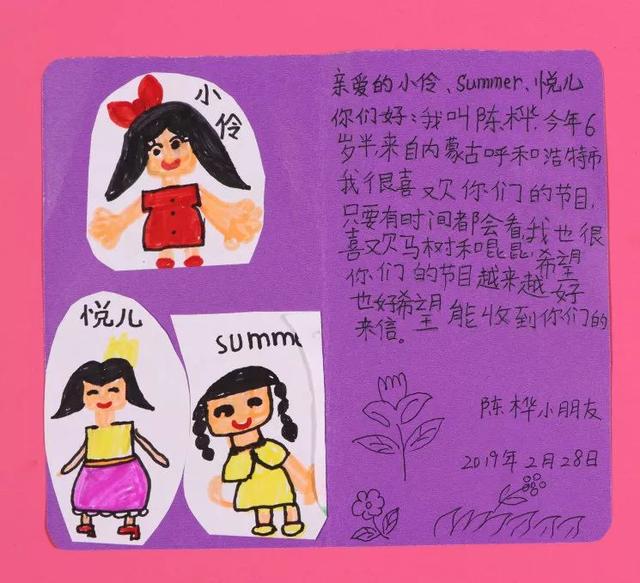 小
伶
悦儿
summe
亲爱的小伶、summer、悦儿
你们好：我叫陈桦，今年6
岁半，来自内蒙古呼和浩特市
我很喜欢你们的节目，
只要有时间都会看，我也很
喜欢马树和昆昆，希望
你们的节目越来越好
也好希望能收到你们的
来信。
陈桦小朋友
2019年2月28日